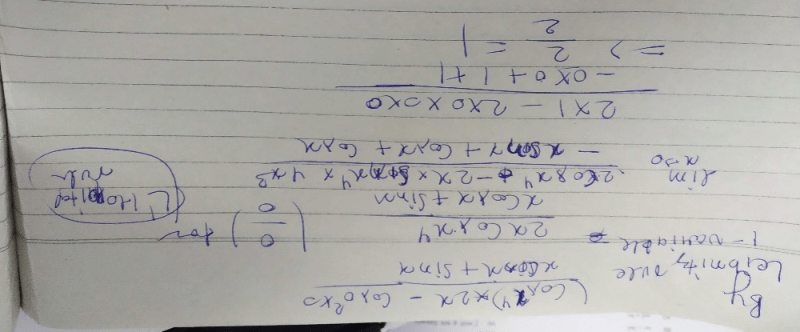 By Leibnitz rule
(Cos x⁴) × 2x - Cos 0² × 0
x Cos x + Sin x
1-variable
2x Cos x⁴
x Cos x + Sin x
(0/0) for L' Hospital rule
lim x→0
2 Cos x⁴ - 2x × Sin x⁴ × 4x³
- x Sin x + Cos x + Cos x
2 × 1 - 2 × 0 × 0 × 0
- 0 × 0 + 1 + 1
=> 2/2 = 1